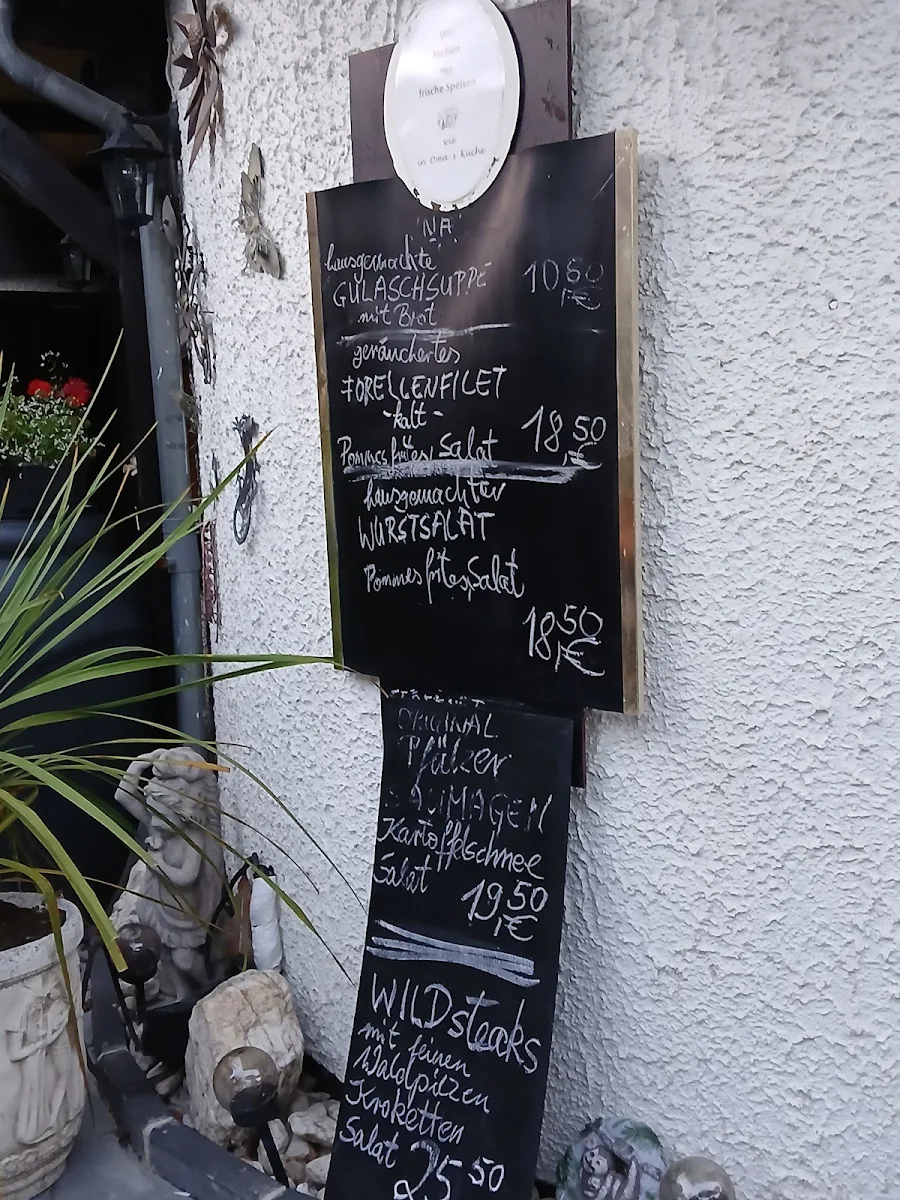 Wir
kochen
nur
frische Speisen
wie
in Oma's Küche
NA
hausgemachte
GULASCHSUPPE 10,50 €
mit Brot
geräuchertes
FORELLENFILET
-kalt-
Pommes frites, Salat 18,50 €
hausgemachter
WURSTSALAT
Pommes frites, Salat
18,50 €
ORIGINAL
Pfälzer
SAUMAGEN
Kartoffelschnee
Salat
19,50 €
WILDsteaks
mit feinen
Waldpilzen
Kroketten
Salat
25,50